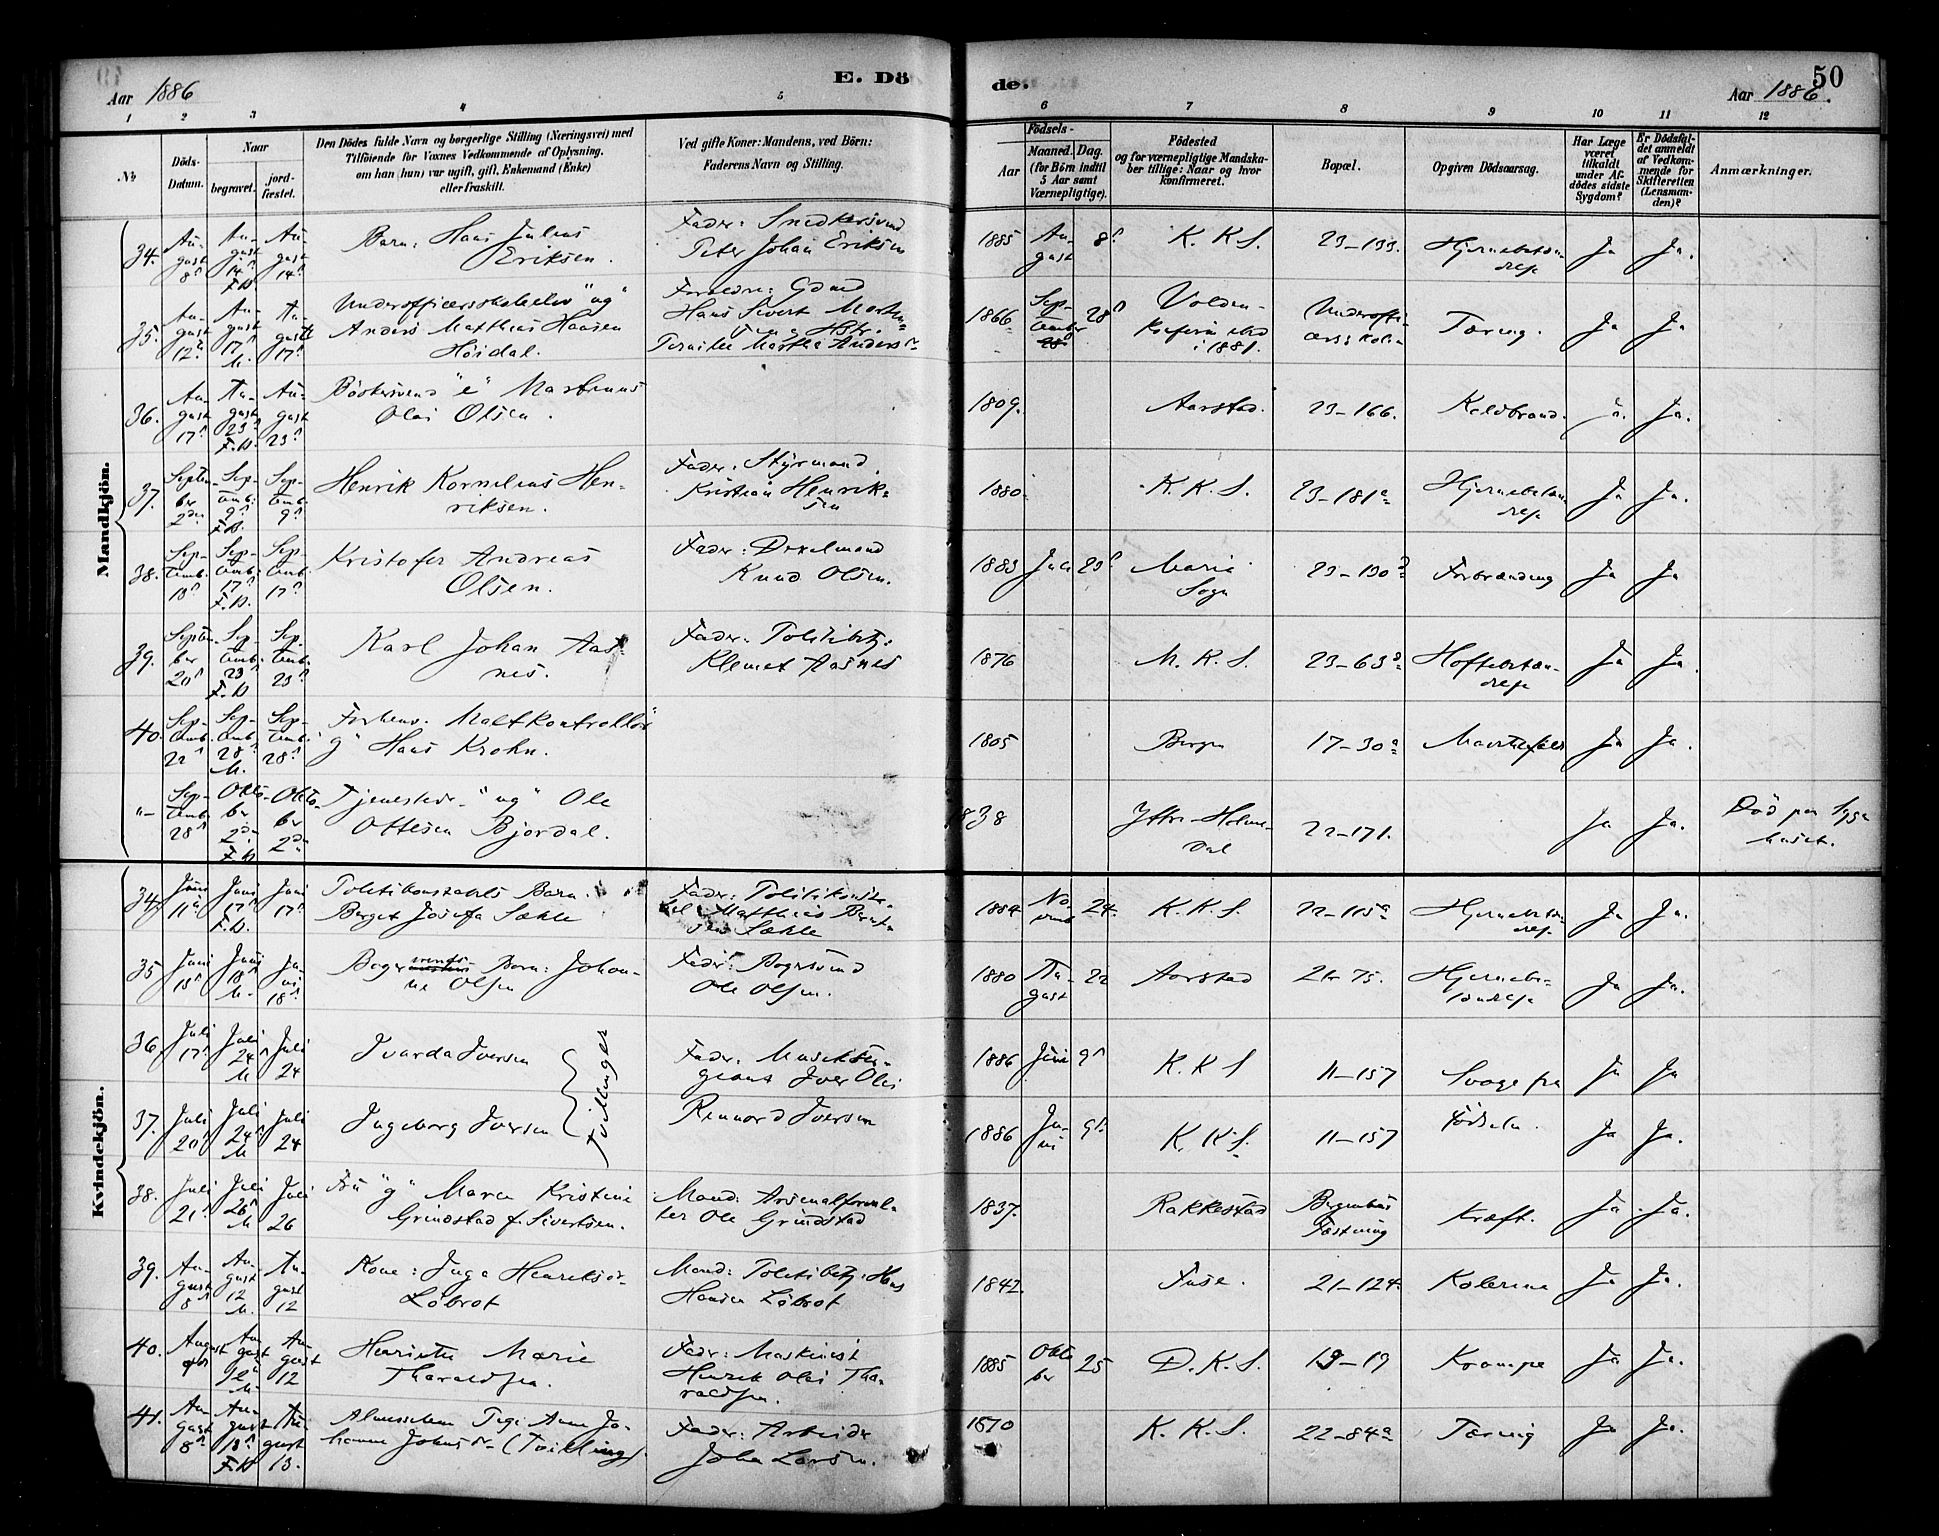 Aar 1886
E. Dö
de.
50
Aar 1886.
1 2 3 4 5 6 7 8 9 10 11 12
No
Döds-
Datum.
Naar
begravet.
jord-
fæstet.
Den Dödes fulde Navn og borgerlige Stilling (Næringsvei) med
Tilföiende for Voxnes Vedkommende af Oplysning,
om han (hun) var ugift, gift, Enkemand (Enke)
eller fraskilt.
Ved gifte Koner: Mandens, ved Börn:
Faderens Navn og Stilling.
Födsels-
Aar
Maaned. Dag.
(for Börn indtil
5 Aar samt
Værnepligtige).
Födested
og for værnepligtige Mandska-
ber tillige: Naar og hvor
konfirmeret.
Bopæl.
Opgiven Dödsaarsag.
Har Læge
været
tilkaldt
under Af-
dödes sidste
Sygdom?
Er Dödsfal-
det anmeldt
af Vedkom-
mende for
Skifteretten
(Lensman-
den)?
Anmærkninger.
Mandkjön.
34.
August 8de
August 14de F.B.
August 14de
Barn: Hans Julius
Eriksen.
Fader: Snedkersvend
Peter Johan Eriksen
1885 August 8de
K. K. S.
23–133.
Hjernebetæn-
delse
Ja Ja.
35.
August 12te
August 17 M.
August 17de
Underofficersskoleelev "ug"
Anders Matthias Hansen
Höidal.
Forældre: Gdmd
Hans Sivert Morten-
sen og Hstr.
Pernille Martha Andersdr
1866 September 28de
Volden-
Konfirm. sted
i 1881.
Underoffi-
cersskolen
Tæring.
Ja Ja
36.
August 17de
August 23de F.B.
August 23de
Bödkersvend "e" Martinus
Olai Olsen.
1809.
Aarstad.
23–166.
Koldbrand.
Ja.
37.
September 2den
Septemb. 9de F.B.
Septemb. 9de
Henrik Kornelius Hen-
riksen.
Fader: Styrmand
Kristian Henrik-
sen
1880.
K. K. S.
23–181a
Hjernebetæn-
delse
Ja Ja.
38.
Septemb. 13de
Septemb. 17 F.B.
Septemb. 17de
Kristofer Andreas
Olsen.
Fader:
Knud Olsen.
1883 Juli 23de
Marie
Sogn
23–130d
Forbrænding
Ja Ja
39.
September 20de
Septemb. 23de F.B.
Septemb. 23de
Karl Johan Aas-
nes.
Fader: Politibetj:
Klemet Aasnes
1876
M. K. S.
23–63d
Hoftebetæn-
delse
Ja Ja.
40.
Septemb. 22de
Septemb. 28de M.
Septemb. 28de
Forhenv. Maltkontrollör
"g" Hans Krohn.
1805
Bergen
17–30a
Ja Ja.
"–
Septemb. 28de
Oktober 2den F.B.
Oktober 2den
Tjenestedr. "ug" Ole
Ottesen Bjordal.
1838
Yttre-Holme-
dal
22–171.
Ja Ja.
Död paa Syge
huset.
Kvindekjön.
34.
Juni 11te
Juni 17de F.B.
Juni 17de
Politikonstabels Barn:
Berget Josefa Sæhle
Fader: Politikonsta-
bel Matthias Bernt-
sen Sæhle
1884 Novemb 24.
K. K. S.
22–115a
Hjernebetæn-
delse
Ja Ja.
35
Juni 15de
Juni 18de M.
Juni 18de
Bagersvends Barn: Johan-
ne Olsen
Fader: Bagersvend
Ole Olsen.
1880 August 22
Aarstad
21–75.
Hjernebe-
tændelse
Ja Ja.
36
Juli 17de
Juli 24 M
Juli 24
Ivarda Iversen
Tvillinger
Fader: Musikser-
geant Iver Olai
1886 Juni 9de
K. K. S
11–157
Svage fra
Ja Ja
37.
Juli 20de
Juli 24de M
Juli 24
Ingeborg Iversen
Rennord Iversen
1886 Juni 9de
K. K. S.
11–157
födselen.
Ja Ja.
38.
Juli 21de
Juli 26de M
Juli 26
Fru "g" Maren Kristine
Grindstad f. Sivertsen.
Mand: Arsenalforval-
ter Ole Grindstad
1837.
Rakkestad
Bergenhus
Fæstning
Kræft.
Ja Ja.
39.
August 8de
August 12 M.
August 12
Kone: Inga Henriksdr
Löbrot
Mand: Politibetj. Hans
Hansen Löbrot
1842.
Fuse.
21–124.
Kolerine
Ja Ja.
40.
August
August M.
August 12
Henriette Marie
Tharaldsen.
Fader: Maskinist
Henrik Olai Tha-
raldsen.
1885 Oktober 25
D. K. S.
19–19
Krampe
Ja Ja.
41.
August 8de
August 13de F.B
August 13.
Almisselem Pige Anne Jo-
hanne Johnsdr (Tvilling).
Fader: Arbeider
John Larsen.
1870
K. K. S.
22–84a
Tæring
Ja Ja.